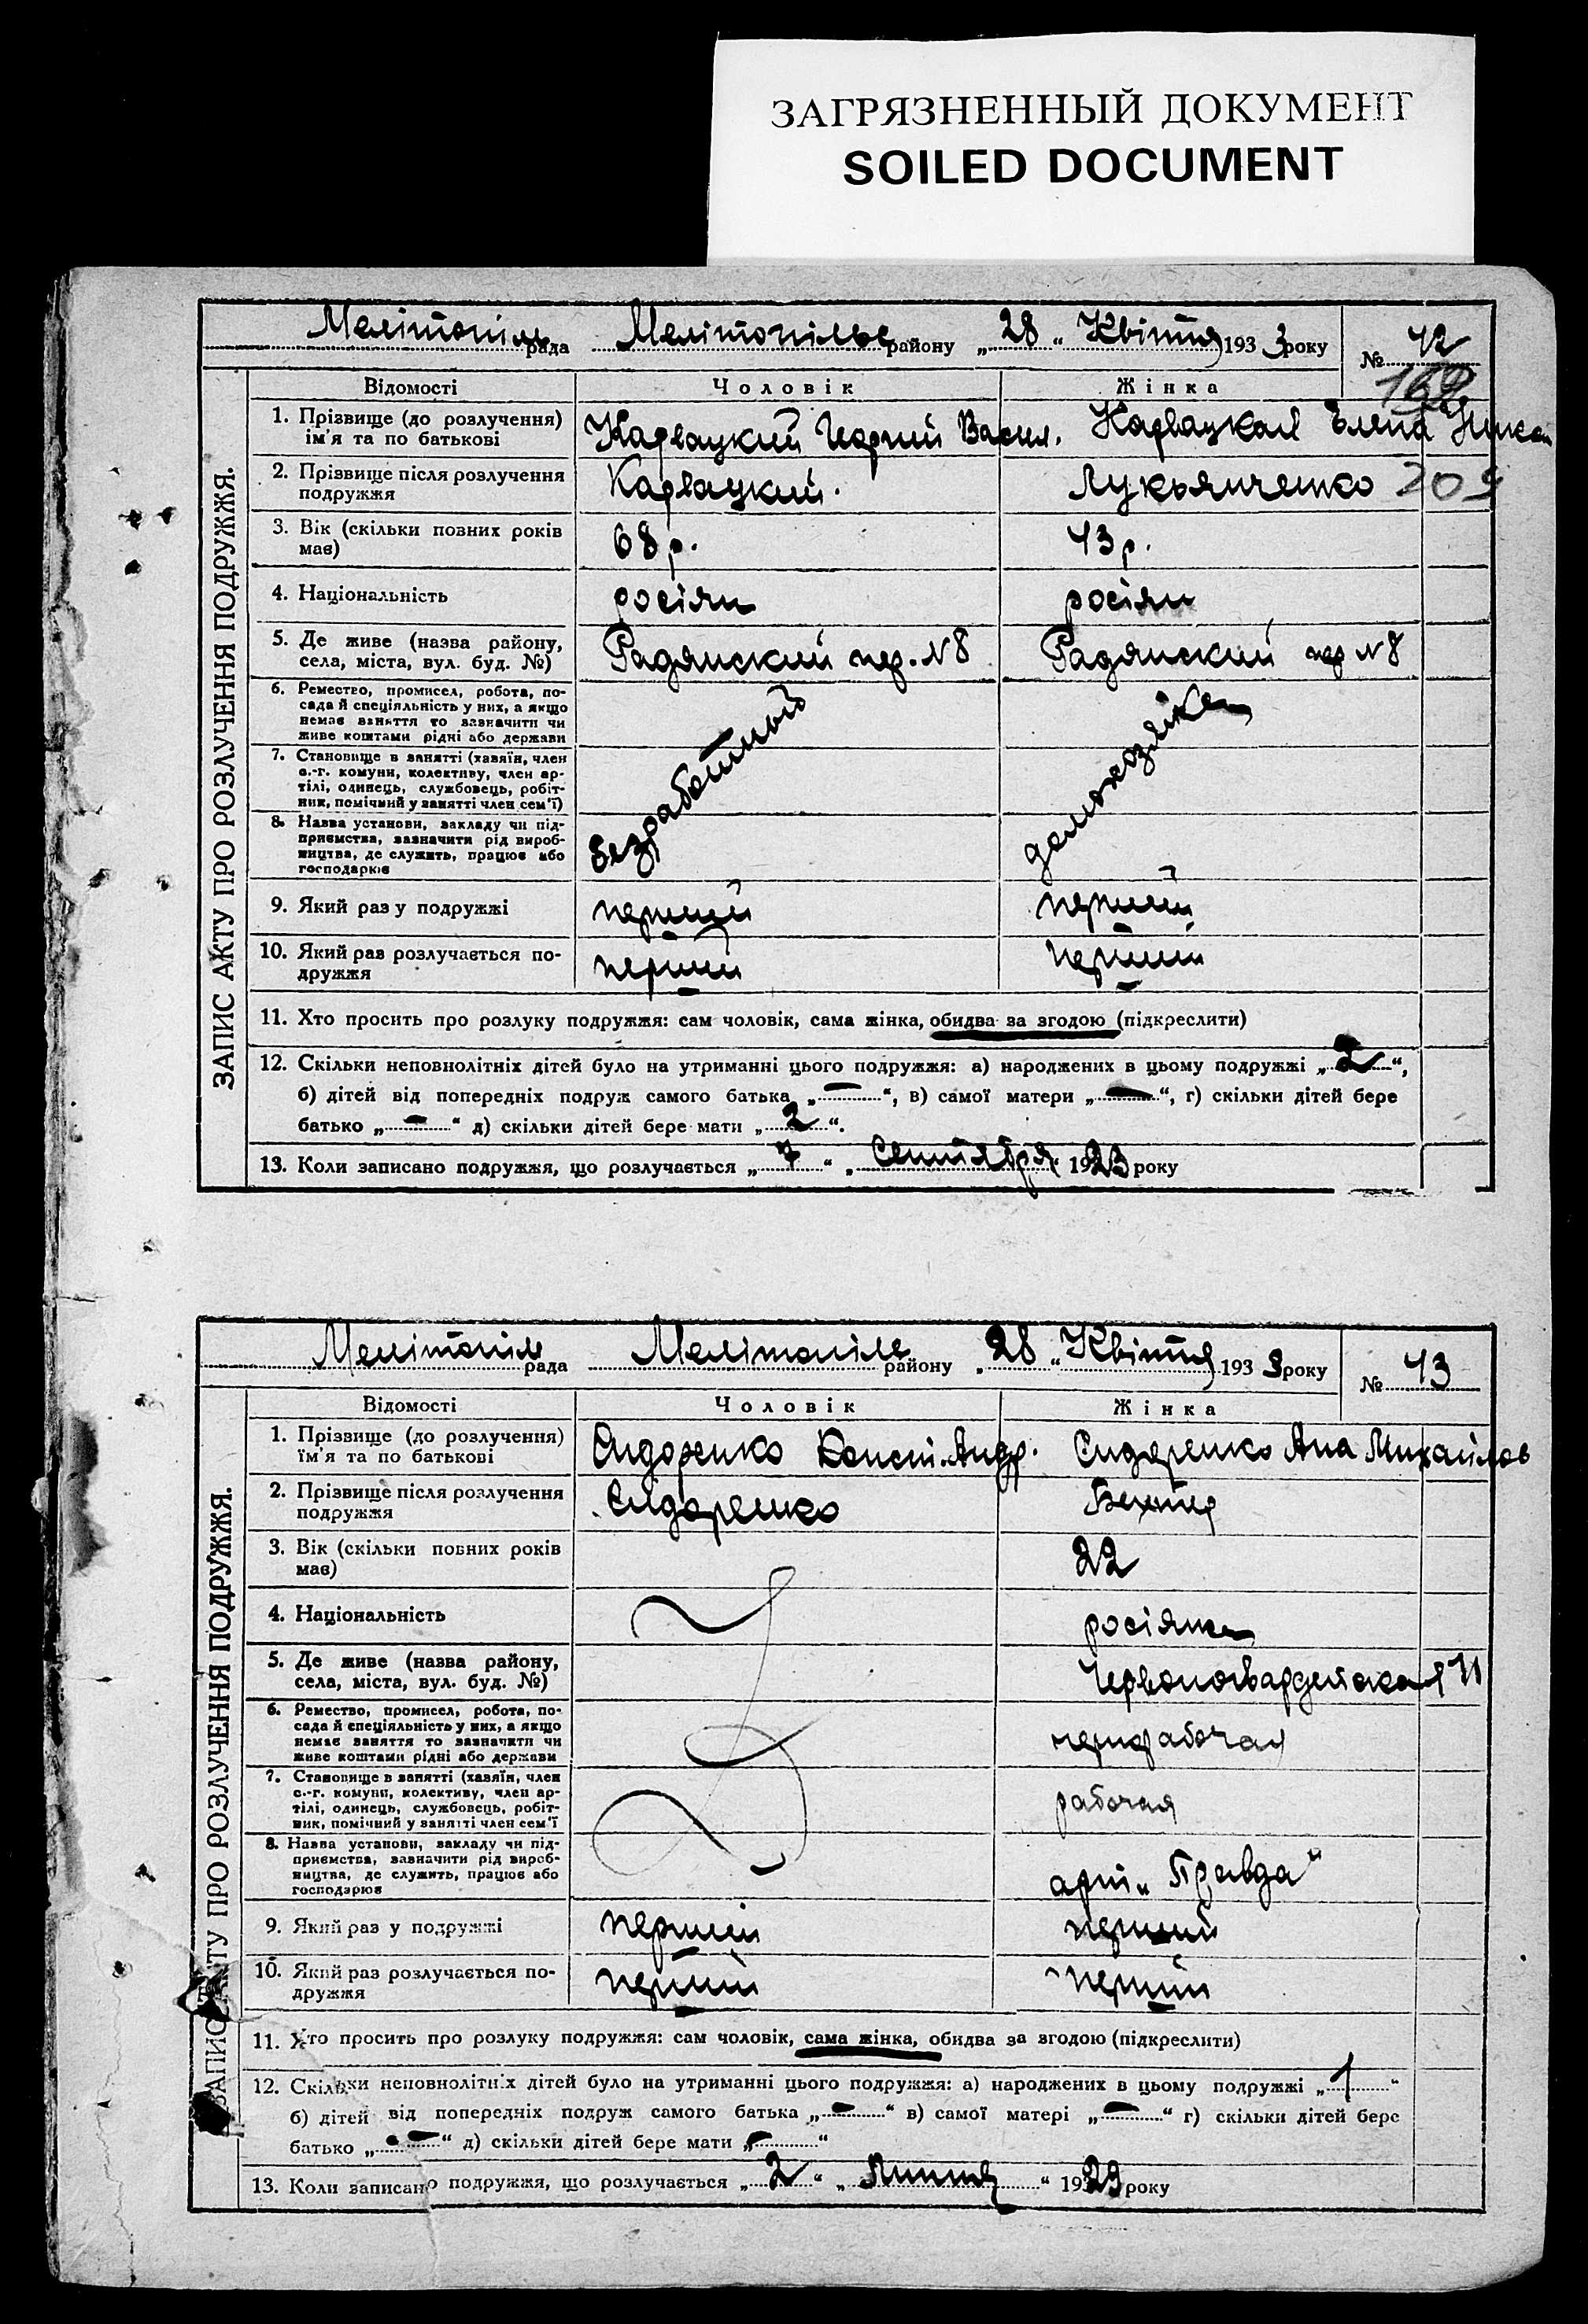 ЗАГРЯЗНЕННЫЙ ДОКУМЕНТ
SOILED DOCUMENT
ЗАПИС АКТУ ПРО РОЗЛУЧЕННЯ ПОДРУЖЖЯ.
Мелітопіль рада Мелітопільс району „28“ Квітня 1933 року № 42
162
Відомості Чоловік Жінка
1. Прізвище (до розлучення) ім'я та по батькові Карвацкий Георгий Васил. Карвацкая Елена
2. Прізвище після розлучення подружжя Карвацкий. Лукьянченко 209
3. Вік (скільки повних років має) 68 р. 43 р.
4. Національність росіян росіян
5. Де живе (назва району, села, міста, вул. буд. №) Радянский пер. N8 Радянский пер N8
6. Ремество, промисел, робота, по-
сада й спеціяльність у них, а якщо
немає заняття то зазначити чи
живе коштами рідні або держави
безработный домохозяйка
7. Становище в занятті (хазяїн, член
с.-г. комуни, колективу, член ар-
тілі, одинець, службовець, робіт-
ник, помічний у занятті член сем'ї)
8. Назва установи, закладу чи під-
приємства, зазначити рід вироб-
ництва, де служить, працює або
господарює
9. Який раз у подружжі перший перший
10. Який раз розлучається по-
дружжя перший перший
11. Хто просить про розлуку подружжя: сам чоловік, сама жінка, обидва за згодою (підкреслити)
12. Скільки неповнолітніх дітей було на утриманні цього подружжя: а) народжених в цьому подружжі „2“,
б) дітей від попередніх подруж самого батька „—“, в) самої матери „—“, г) скільки дітей бере
батько „—“ д) скільки дітей бере мати „2“.
13. Коли записано подружжя, що розлучається „7“ „Сентября“ 1923 року
ЗАПИС АКТУ ПРО РОЗЛУЧЕННЯ ПОДРУЖЖЯ.
Мелітопіль рада Мелітопіль району „28“ Квітня 1933 року № 43
Відомості Чоловік Жінка
1. Прізвище (до розлучення) їм'я та по батькові Сидоренко Конст. Андр. Сидоренко Ана Михайлов
2. Прізвище після розлучення подружжя Сидоренко
3. Вік (скільки повних років має) 22
4. Національність росіянка
5. Де живе (назва району, села, міста, вул. буд. №) Червоногвардейская 11
6. Ремество, промисел, робота, по-
сада й спеціяльність у них, а якщо
немає заняття то зазначити чи
живе коштами рідні або держави
чернорабочая
7. Становище в занятті (хазяїн, член
с.-г. комуни, колективу, член ар-
тілі, одинець, службовець, робіт-
ник, помічний у занятті член сем'ї
рабочая
8. Назва установи, закладу чи під-
приємства, зазначити рід вироб-
ництва, де служить, працює або
господарює
арт. „Правда“
9. Який раз у подружжі перший перший
10. Який раз розлучається по-
дружжя перший перший
11. Хто просить про розлуку подружжя: сам чоловік, сама жінка, обидва за згодою (підкреслити)
12. Скільки неповнолітніх дітей було на утриманні цього подружжя: а) народжених в цьому подружжі „1“
б) дітей від попередніх подруж самого батька „—“ в) самої матері „—“ г) скільки дітей бере
батько „—“ д) скільки дітей бере мати „“
13. Коли записано подружжя, що розлучається „2“ „Липня“ 1929 року